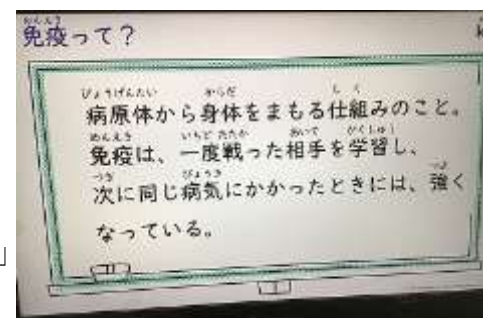 免疫って?
病原体から身体をまもる仕組みのこと。
免疫は、一度戦った相手を学習し、
次に同じ病気にかかったときには、強く
なっている。